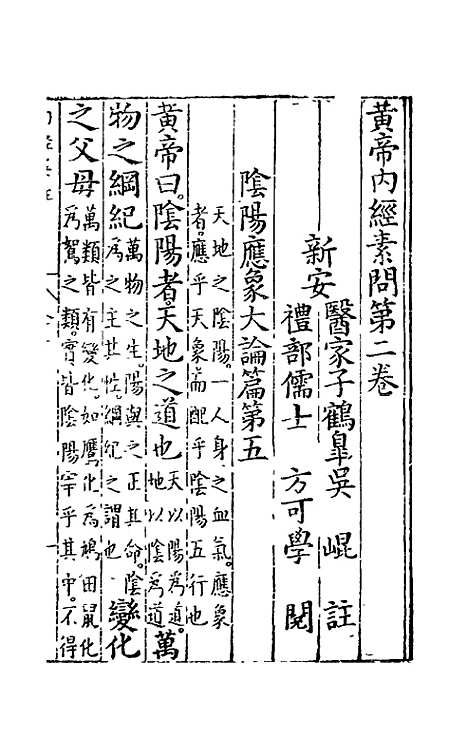 黄帝内經素問第二卷
新安
醫家子鶴臯吳 崐 註
禮部儒士 方可學 閱
陰陽應象大論篇第五
天地之陰陽。一人身之血氣。應象
者。應乎天象而配乎陰陽五行也
黄帝曰。陰陽者。天地之道也
天以陽為道。
地以陰為道
萬
物之綱紀
萬物之生。陽與之正其命。陰
為之主其性。綱紀之謂也
變化
之父母
萬類皆有變化。如鷹化為鳩田鼠化
為鴽之類。實皆陰陽宰乎其中。不得